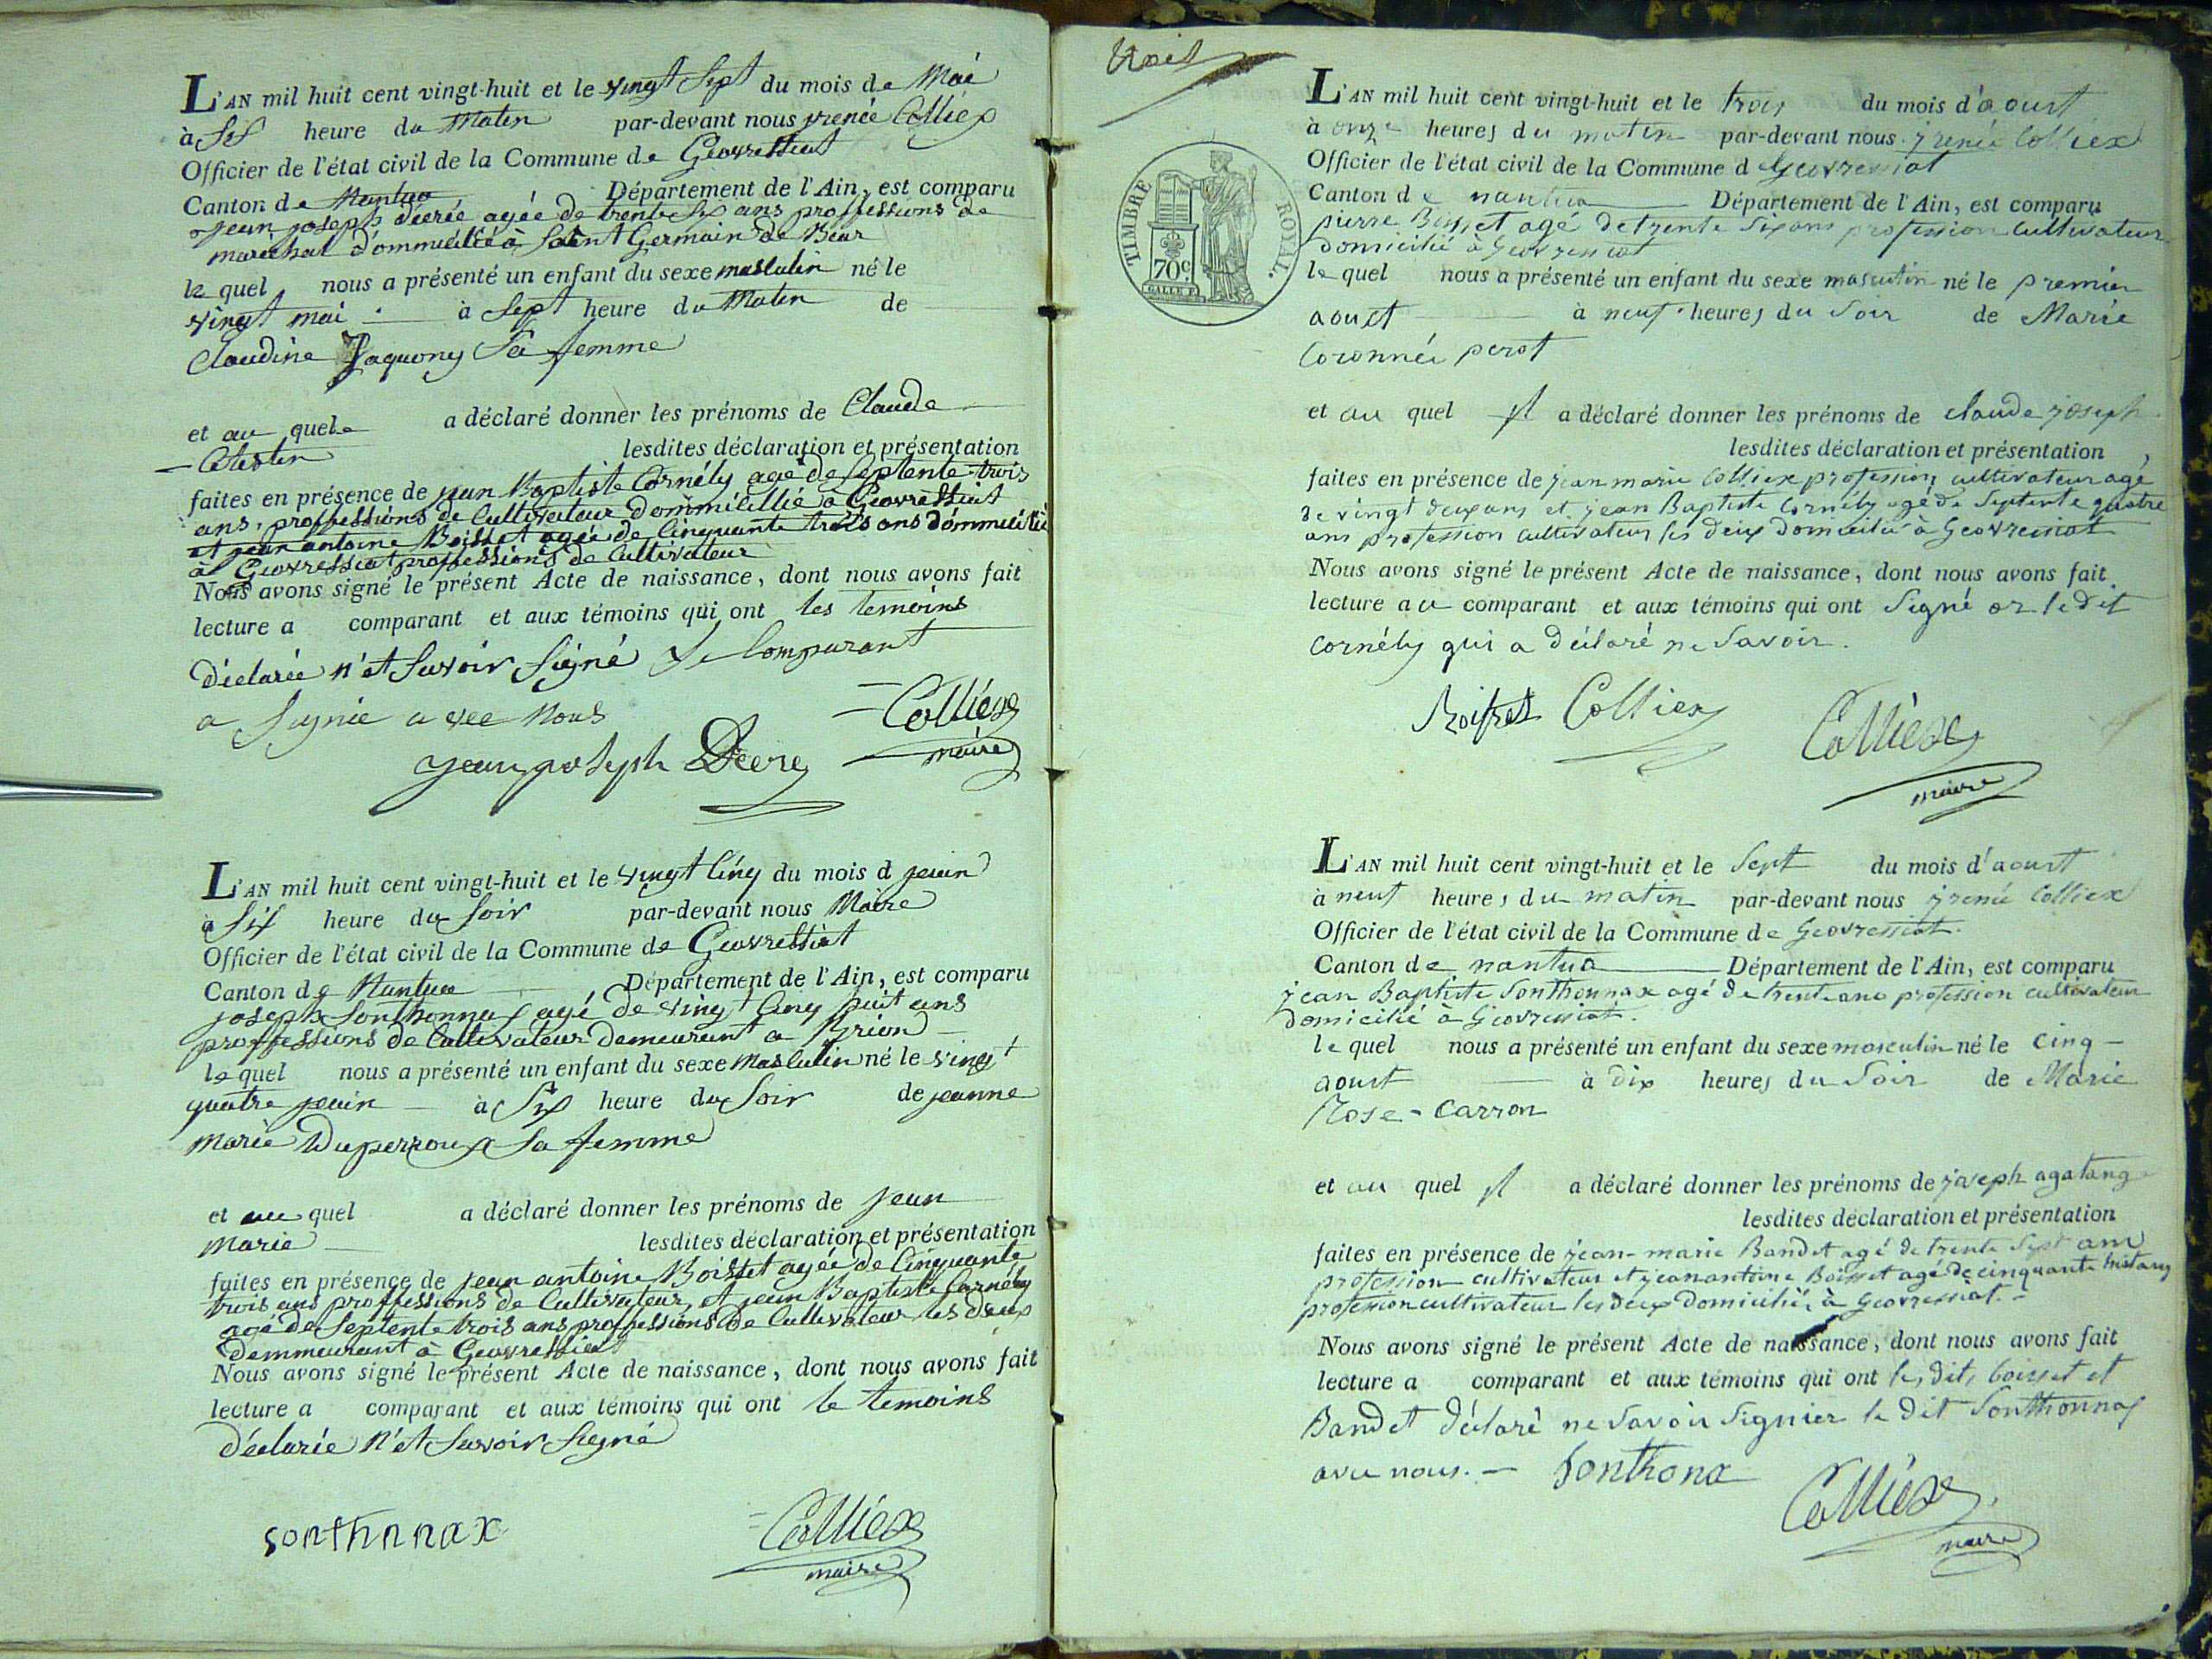 L'AN mil huit cent vingt-huit et le vingt Sept du mois de Mai
à Six heure du Maten par-devant nous yrenée Colliex
Officier de l'état civil de la Commune de Geovressiat
Canton de Nantua Département de l'Ain, est comparu
jean joseph décrée agée de trente six ans proffessions de
marechal d'ommicilié à Saint Germain de Bear
le quel nous a présenté un enfant du sexe masculin né le
vingt mai à Sept heure du Maten de
Claudine Jaquony Sa femme
et au quele a déclaré donner les prénoms de Claude
Celesten lesdites déclaration et présentation
faites en présence de jean Baptiste Cornély agé de septente trois
ans, proffessions de Cultivateur dommicillié à Geovressiat
et jean antoine Boisset agée de Cinquante trois ans dommicilié
à Geovressiat proffessions de Cultivateur
Nous avons signé le présent Acte de naissance, dont nous avons fait
lecture a comparant et aux témoins qui ont les temoins
déclarée n'et Savoir Signé Le Comparant
a Signée avec Nous
Colliex
maire
jean joseph Decre
L'AN mil huit cent vingt-huit et le vingt Cinq du mois d juin
à Six heure du Soir par-devant nous Maire
Officier de l'état civil de la Commune de Geovressiat
Canton de Nantua Département de l'Ain, est comparu
joseph Sonthonnax agé de vingt Cinq huit ans
proffessions de Cultivateur Demeurant a Brion
le quel nous a présenté un enfant du sexe masculin né le vingt
quatre juin à Six heure du Soir de jeanne
Marie Duperroux Sa femme
et au quel a déclaré donner les prénoms de jean
Marie lesdites déclaration et présentation
faites en présence de jean antoine Boisset agée de Cinquante
trois ans proffessions de Cultivateur, et jean Baptiste Cornély
agé de Septente trois ans proffessions de Cultivateur les deux
demmeurant à Geovressiat
Nous avons signé le présent Acte de naissance, dont nous avons fait
lecture a comparant et aux témoins qui ont le temoins
déclarée n'et Savoir Signé
sonthnnax
Colliex
maire
trois
TIMBRE ROYAL.
70c.
L'AN mil huit cent vingt-huit et le trois du mois d'aoust
à onze heures du matin par-devant nous yrenée Colliex
Officier de l'état civil de la Commune d Geovressiat
Canton de nantua Département de l'Ain, est comparu
pierre Boisset agé de trente Six ans profession Cultivateur
domicilié à Geovressiat
le quel nous a présenté un enfant du sexe masculin né le premier
aoust à neuf heures du Soir de Marie
Coronnée perot
et au quel jl a déclaré donner les prénoms de claude joseph
lesdites déclaration et présentation
faites en présence de jean marie Colliex profession cultivateur agé
de vingt deux ans et jean Baptiste Cornély agé de Septente quatre
ans profession cultivateur les deux domicilié à Geovressiat
Nous avons signé le présent Acte de naissance, dont nous avons fait
lecture au comparant et aux témoins qui ont Signé or le dit
Cornély qui a déclaré ne Savoir.
Boisset Colliex
Colliex
maire
L'AN mil huit cent vingt-huit et le Sept du mois d'aoust
à neuf heures du matin par-devant nous yrenée Colliex
Officier de l'état civil de la Commune de Geovressiat.
Canton de nantua Département de l'Ain, est comparu
jean Baptiste Sonthonnax agé de trente ans profession cultivateur
domicilié à Geovressiat.
le quel nous a présenté un enfant du sexe masculin né le cinq
aoust à dix heures du Soir de Marie
Rose - Carron
et au quel jl a déclaré donner les prénoms de joseph agatang
lesdites déclaration et présentation
faites en présence de jean-marie Bandet agé de trente Sept ans
profession cultivateur et jean antoine Boisset agé de cinquante trois ans
profession cultivateur les deux domicilié à Geovressiat.
Nous avons signé le présent Acte de naissance, dont nous avons fait
lecture a comparant et aux témoins qui ont les dits boisset et
Bandet déclaré ne Savoir Signier le dit Sonthonnax
avec nous. - Sonthonax
Colliex
maire